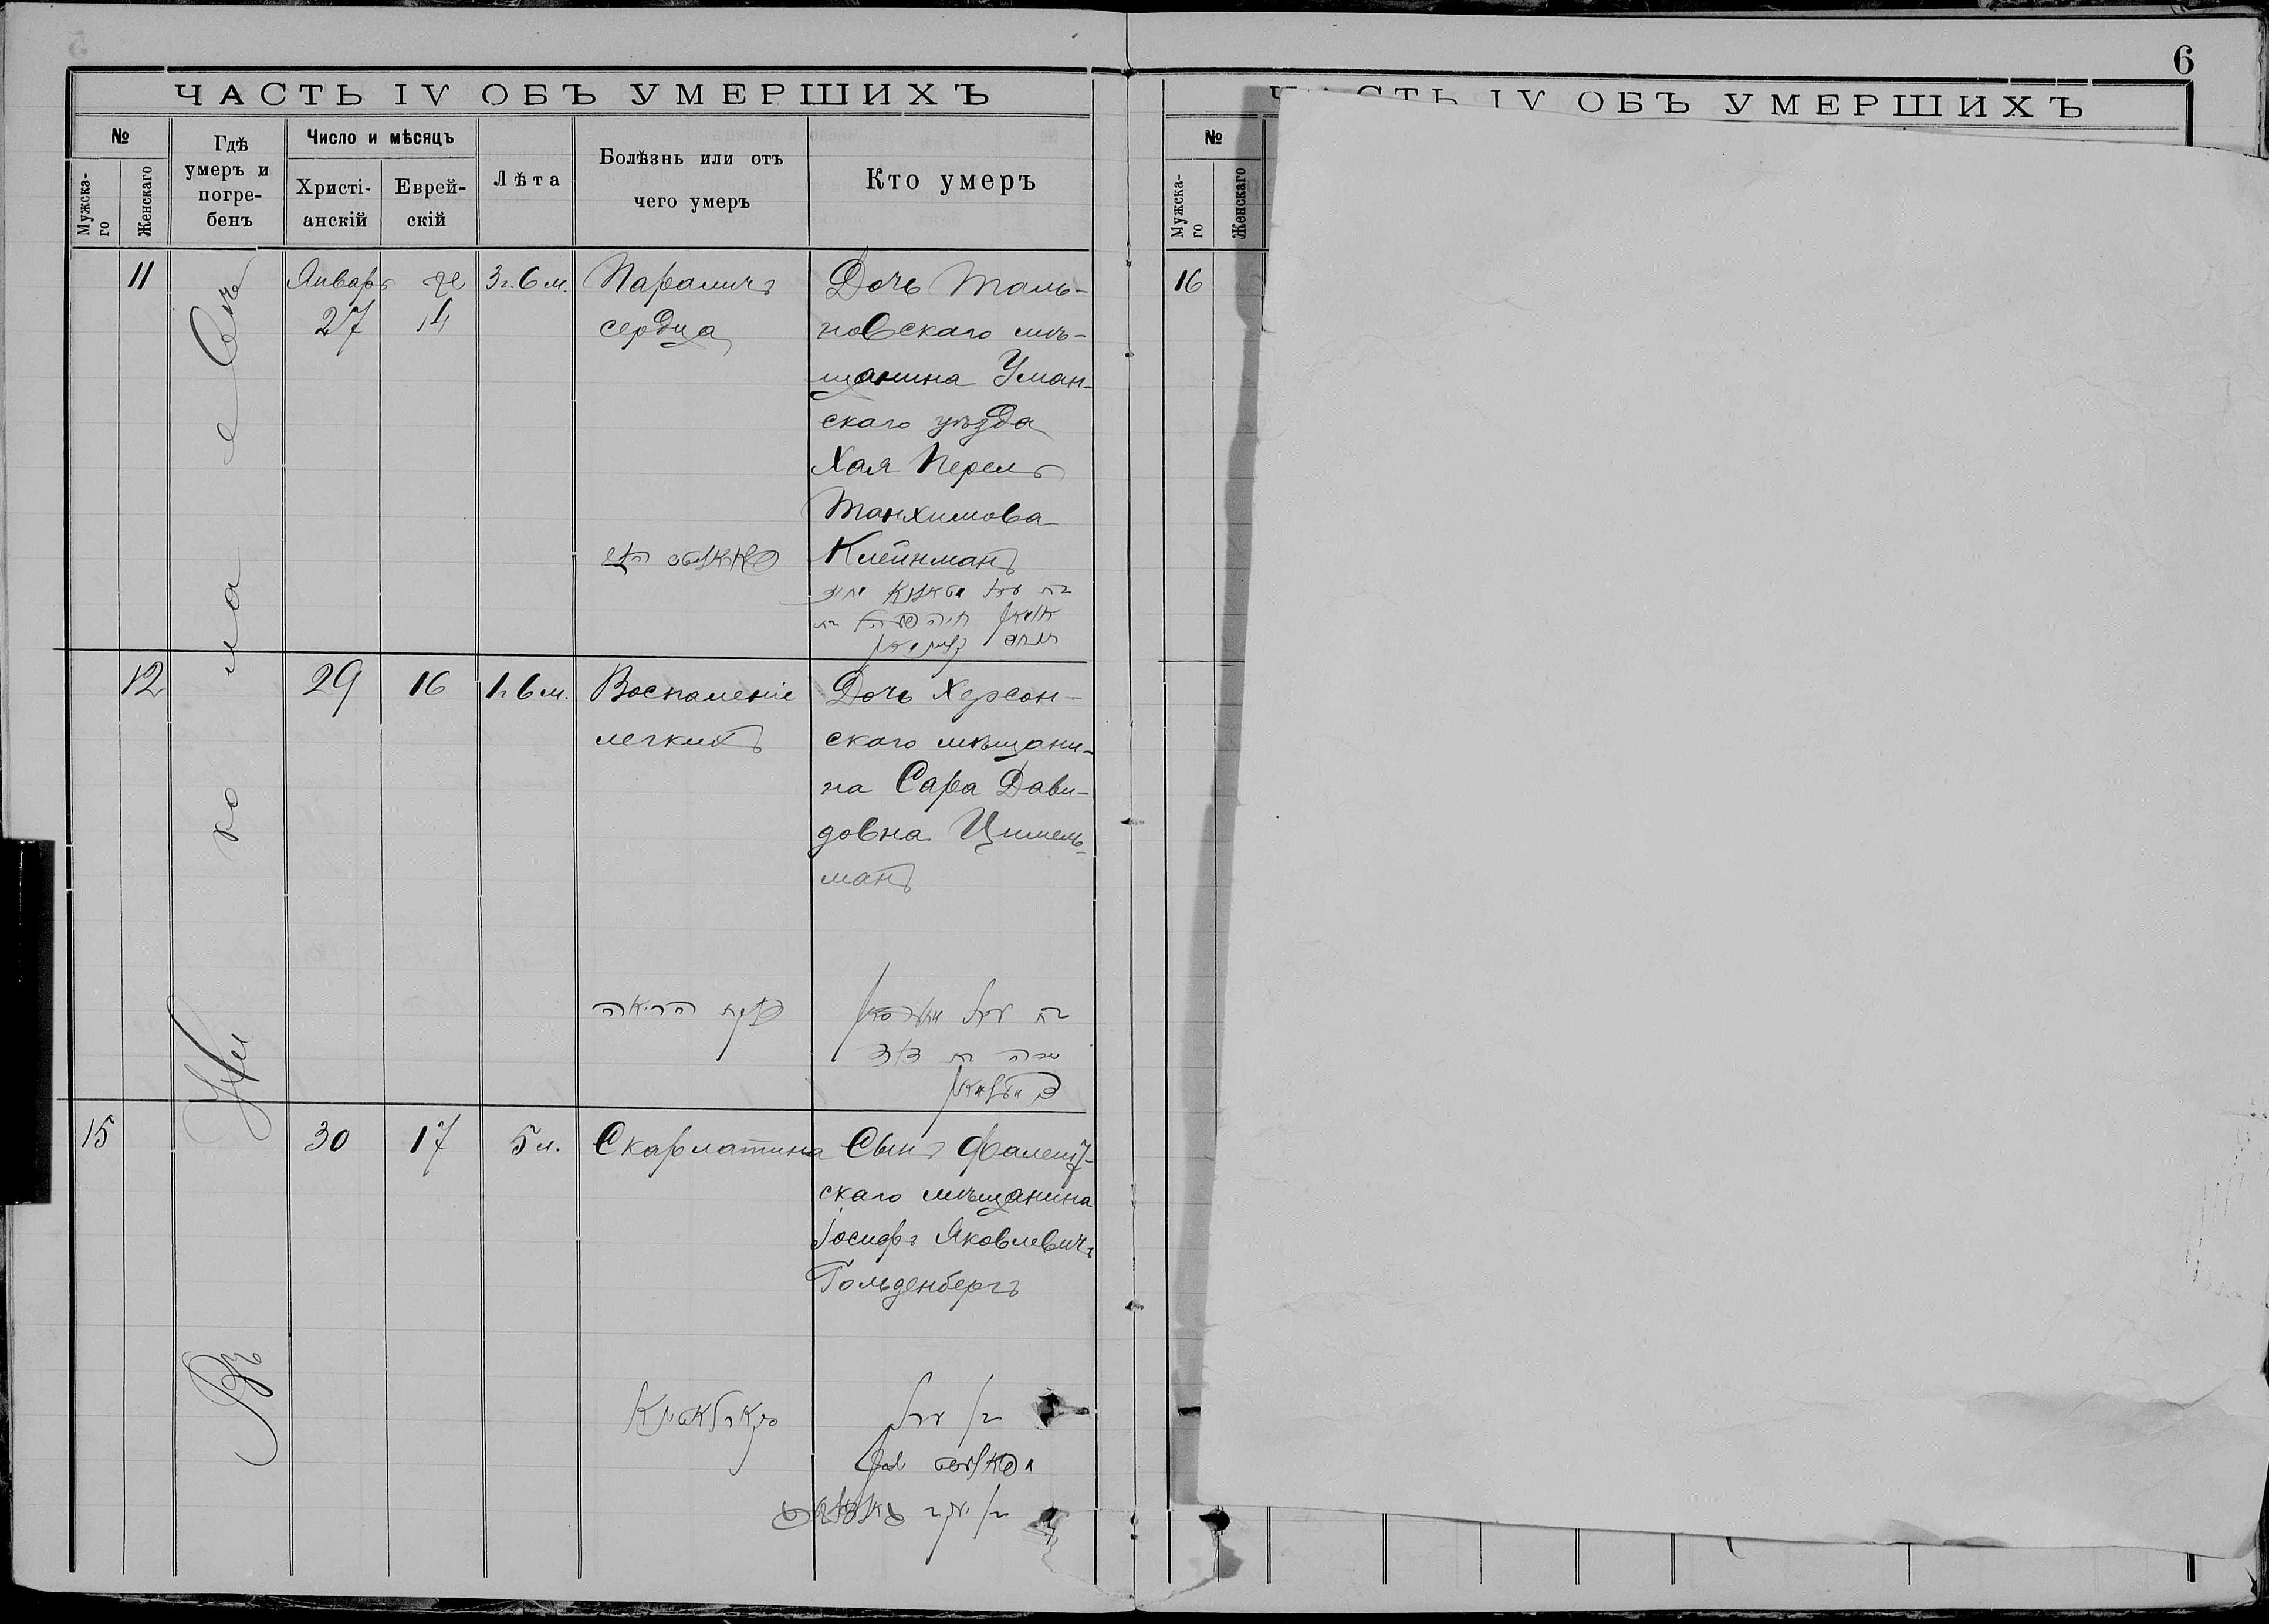 5
ЧАСТЬ IV ОБЪ УМЕРШИХЪ
№
Мужска-
го
Женскаго
Гдѣ
умеръ и
погре-
бенъ
Число и мѣсяцъ
Христі-
анскій
Еврей-
скій
Лѣта
Болѣзнь или отъ
чего умеръ
Кто умеръ
Въ
11
Январь
27
14
3 г. 6 м.
Параличъ
сердца
Дочь Таль-
новскаго мѣ-
щанина Уман-
скаго уѣзда
Хая Перель
Танхимова
Клейнманъ
12
29
16
1 г. 6 м.
Воспаленіе
легкихъ
דלקת הריאה
Дочь Херсон-
скаго мѣщани-
на Сара Дави-
довна Цимель-
манъ
שרה בת דוד
15
30
17
5 л.
Скарлатина
סקארלאטינא
Сынъ Фалешт-
скаго мѣщанина
Іосифъ Яковлевичъ
Гольденбергъ
6
ЧАСТЬ IV ОБЪ УМЕРШИХЪ
№
Мужска-
го
Женскаго
16